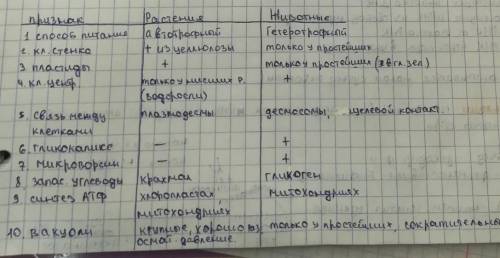 признак Растения Животные
1. способ питания автотрофный Гетеротрофной
2. кл. стенка + из целлюлозы только у простейших
3. пластиды + только у простейших (эвгл. зел)
4. кл. центр. только у низших р. +
(водоросли)
5. связь между плазмодесмы десмосомы, щелевой контакт
клетками
6. гликокаликс — +
7. микроворсин — +
8. запас. углеводы крахмал гликоген
9. синтез АТФ хлоропластах, митохондриях
митохондриях
10. Вакуоли крупные, хорошо только у простейших, сократительны
осмот. давление